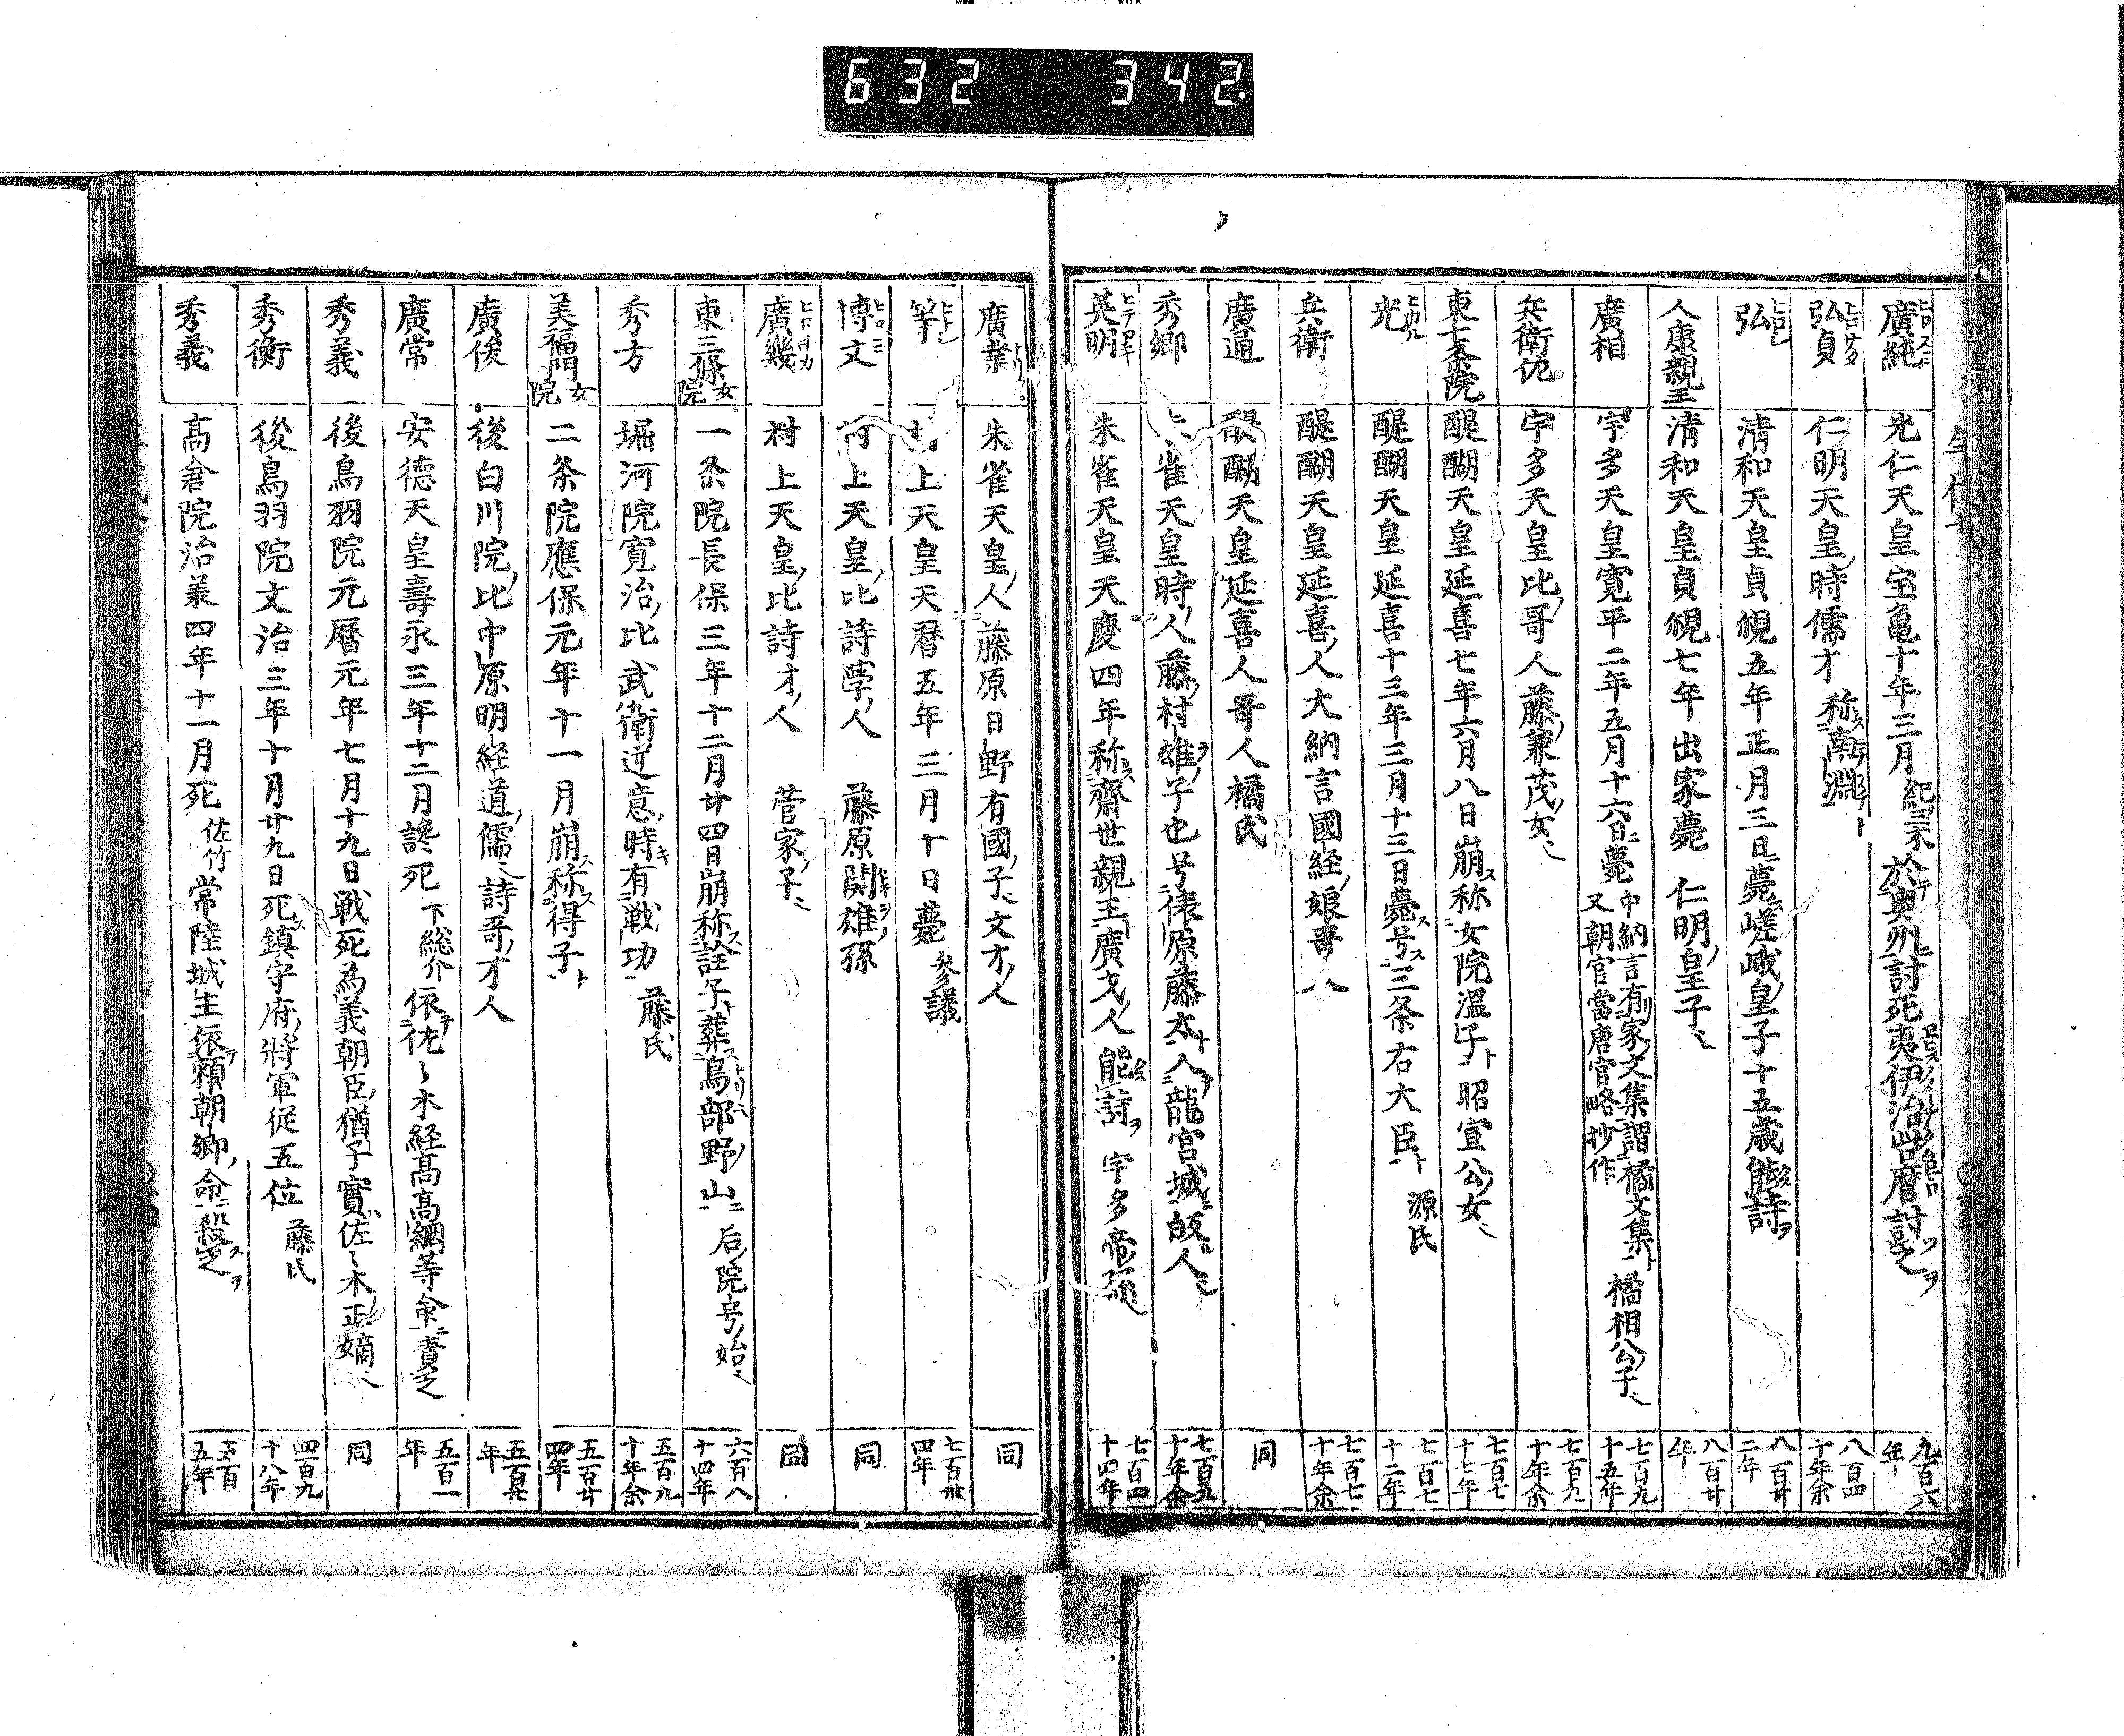 632 342.
廣純 光仁天皇宝亀十年三月 紀ノ宗 於テ奥州ニ討死夷伊治呰麿討之ヲ 九百六年
弘貞 仁明天皇ノ時儒才 称ス南淵ト 八百四十年余
弘 清和天皇貞観五年正月三日薨嵯峨ノ皇子十五歳能詩ヲ 八百廿二年
人康親王 清和天皇貞観七年出家薨 仁明ノ皇子 八百廿年
廣相 宇多天皇寛平二年五月十六日薨 中納言有家文集謂橘文集ト 又朝官當唐官略抄作 橘相公ノ子 七百九十五年
兵衛佐 宇多天皇ノ比哥人藤ノ兼茂ノ女 七百九十年余
東七条院 醍醐天皇延喜七年六月八日崩ス称女院温子ト 昭宣公ノ女 七百七十七年
光 醍醐天皇延喜十三年三月十三日薨ス号ス三条右大臣ト 源氏 七百七十二年
兵衛 醍醐天皇延喜ノ人大納言國経ノ娘哥人 七百七十年余
廣通 醍醐天皇延喜人哥人橘氏 同
秀郷 朱雀天皇時ノ人藤ノ村雄ノ子也号俵原藤太ト入龍宮城ニ皈人 七百五十年余
英明 朱雀天皇天慶四年称ス齋世親王ト廣才ノ人 能詩ヲ 宇多帝孫 七百四十四年
廣業 朱雀天皇ノ人藤原日野有國ノ子文才ノ人 同
等 村上天皇天暦五年三月十日薨 参議 七百卅四年
博文 村上天皇ノ比詩学ノ人 藤原関雄ノ孫 同
廣幾 村上天皇ノ比詩才ノ人 菅家ノ子 同
東三條女院 一条院長保三年十二月廿四日崩称ス詮子ト葬ス鳥部野ノ山ニ 后ノ院号ノ始 六百八十四年
秀方 堀河院寛治ノ比武衛逆意ノ時有戦功 藤氏 五百九十年余
美福門女院 二条院應保元年十一月崩ス称ス得子ト 五百廿四年
廣俊 後白川院ノ比中原明経道ノ儒詩哥ノ才人 五百卅年
廣常 安徳天皇壽永三年十二月讒死 下総介 依テ佐々木経高高綱等命ニ責之 五百一年
秀義 後鳥羽院元暦元年七月十九日戦死為義朝臣ノ猶子實佐々木正嫡 同
秀衡 後鳥羽院文治三年十月廿九日死鎮守府ノ将軍従五位 藤氏 四百九十八年
秀義 高倉院治美四年十一月死 佐竹 常陸城主依テ頼朝卿ノ命ニ殺ス之ヲ 五百五年